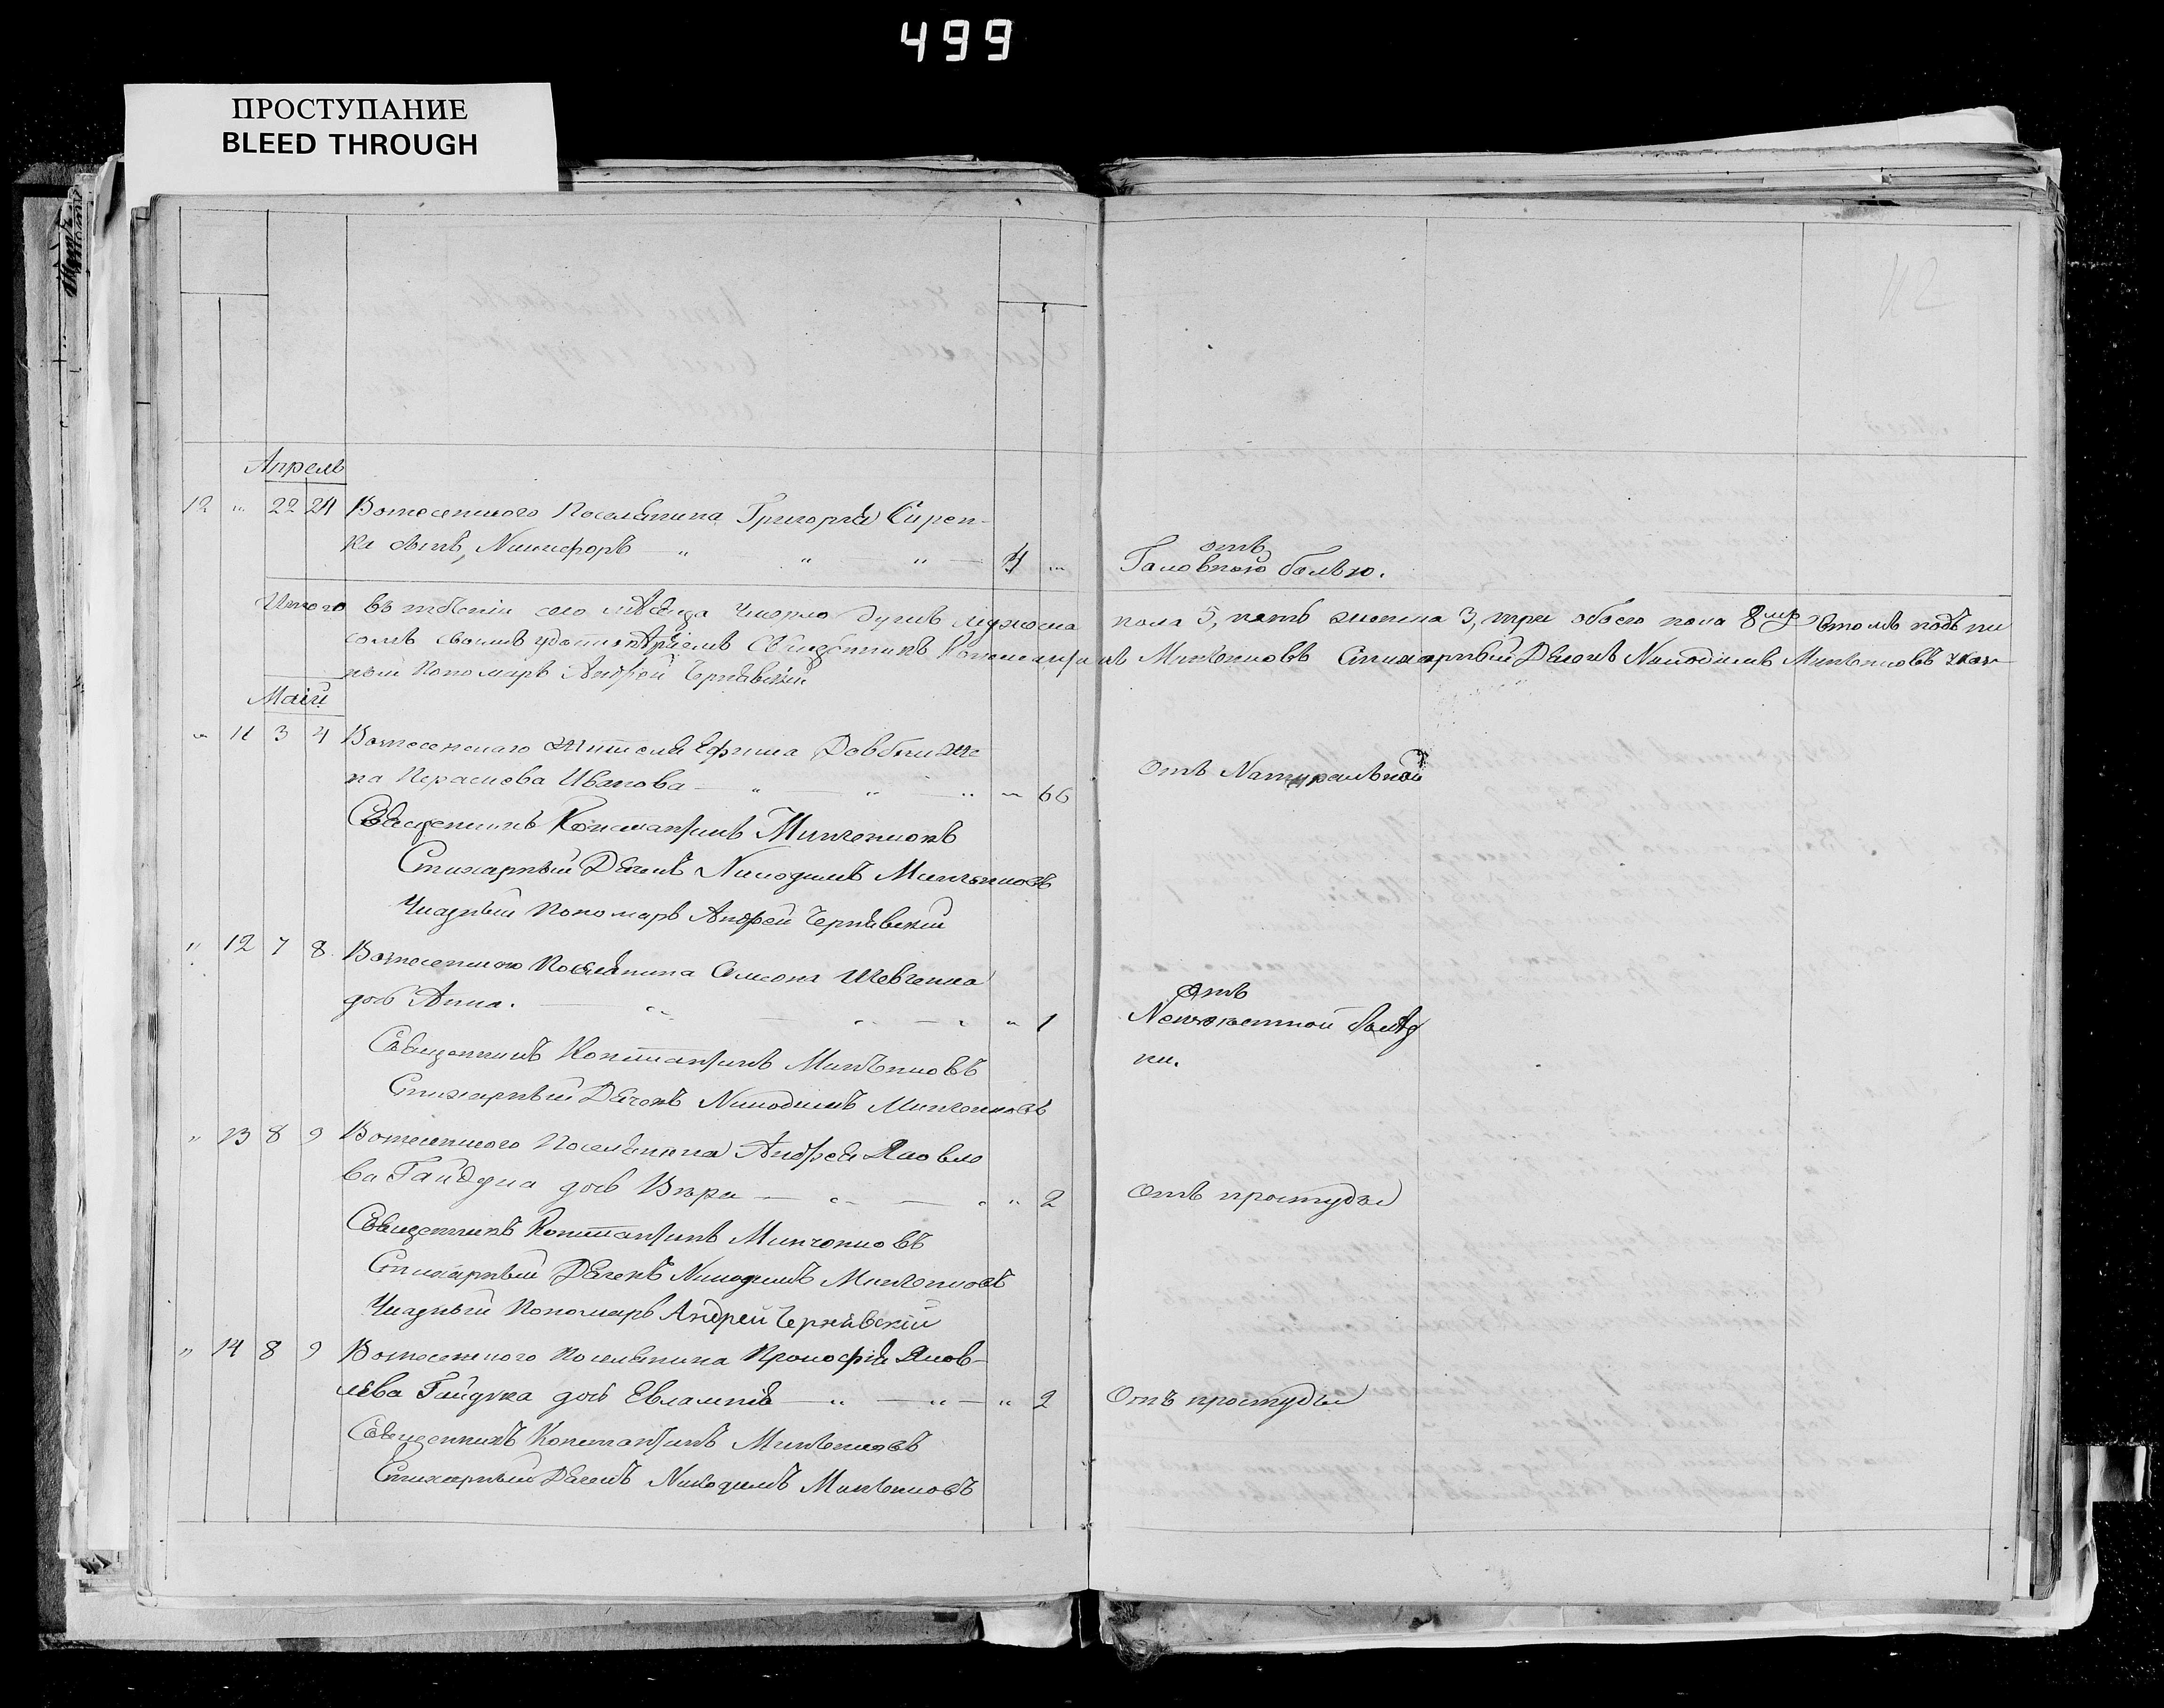 499
ПРОСТУПАНИЕ
BLEED THROUGH
112
Апрель
12 " 22 24 Вознесенского Поселянина Григорія Сирен-
ка сынъ, Никифоръ — " " " — 4 "
отъ
Головною болью.
Итого въ теченіи сего мѣсяца умерло душъ мужеска пола 5, пять женска 3, три обоего пола 8мь Въ томъ подъпи
сомъ своимъ Священникъ Константинъ Минченковъ Стихарный Дячокъ Никодимъ Минченковъ Указ-
ный Пономарь Андрей Чернявскій
Маій
" 11 3 4 Вознесенскаго Жителя Ефима Довбни же
на Параскева Иванова — " — " — " " 66
Отъ Натуральной
Священникъ Константинъ Минченковъ
Стихарный Дячекъ Никодимъ Минченковъ
Указный Пономарь Андрей Чернявскій
" 12 7 8 Вознесенского Поселянина Семена Шевченка
дочь Анна. — " — " — " " 1
Отъ
Неизвестной болѣз
ни.
Священникъ Константинъ Минченковъ
Стихарный Дячокъ Никодимъ Минченковъ
" 13 8 9 Вознесенского Поселянина Андрея Яковле
ва Гайдука дочь Вѣра — " — " " 2
Отъ простуды
Священникъ Константинъ Минченковъ
Стихарный Дячекъ Никодимъ Минченковъ
Указный Пономарь Андрей Чернявскій
" 14 8 9 Вознесенского Поселянина Прокофія Яков-
лева Гайдука дочь Евлампія — " — " — " 2
Отъ простуды
Священникъ Константинъ Минченковъ
Стихарный Дячекъ Никодимъ Минченковъ